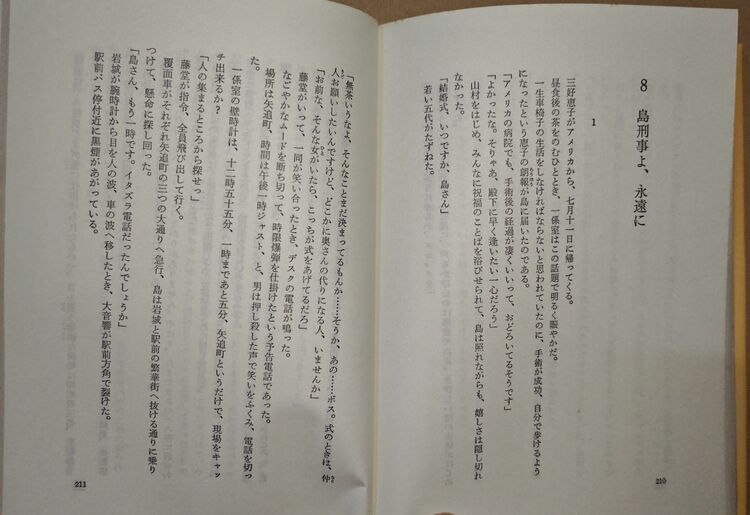 8 島刑事よ、永遠に
1
三好恵子がアメリカから、七月十一日に帰ってくる。
昼食後の茶をのむひととき、一係室はこの話題で明るく賑やかだ。
一生車椅子の生活をしなければならないと思われていたのに、手術が成功、自分で歩けるよう
になったという恵子の朗報が島に届いたのである。
「アメリカの病院でも、手術後の経過が凄くいいって、おどろいてるそうです」
「よかったな。そりゃあ、殿下に早く逢いたい一心だろう」
山村をはじめ、みんなに祝福のことばを浴びせられて、島は照れながらも、嬉しさは隠し切れ
なかった。
「結婚式、いつですか、島さん」
若い五代がたずねた。
210
「無茶いうなよ、そんなことまだ決まってるもんか……そうか、あの……ボス。式のときは、仲
人お願いしたいんですけど、どこかに奥さんの代りになる人、いませんか」
「お前な、そんな女がいたら、こっちが式をあげてるだろ」
藤堂がいって、一同が笑い合ったとき、デスクの電話が鳴った。
なごやかなムードを断ち切って、時限爆弾を仕掛けたという予告電話であった。
場所は矢追町、時間は午後一時ジャスト、と、男は押し殺した声で笑いをふくみ、電話を切っ
た。
一係室の壁時計は、十二時五十五分、一時まであと五分、矢追町というだけで、現場をキャッ
チ出来るか?
「人の集まるところから探せっ」
藤堂が指令、全員飛び出して行く。
覆面車がそれぞれ矢追町の三つの大通りへ急行、島は岩城と駅前の繁華街へ抜ける通りに乗り
つけて、懸命に探し回った。
「島さん、もう一時です。イタズラ電話だったんでしょうか」
岩城が腕時計から目を人の波、車の波へ移したとき、大音響が駅前方角で裂けた。
駅前バス停付近に黒煙があがっている。
211